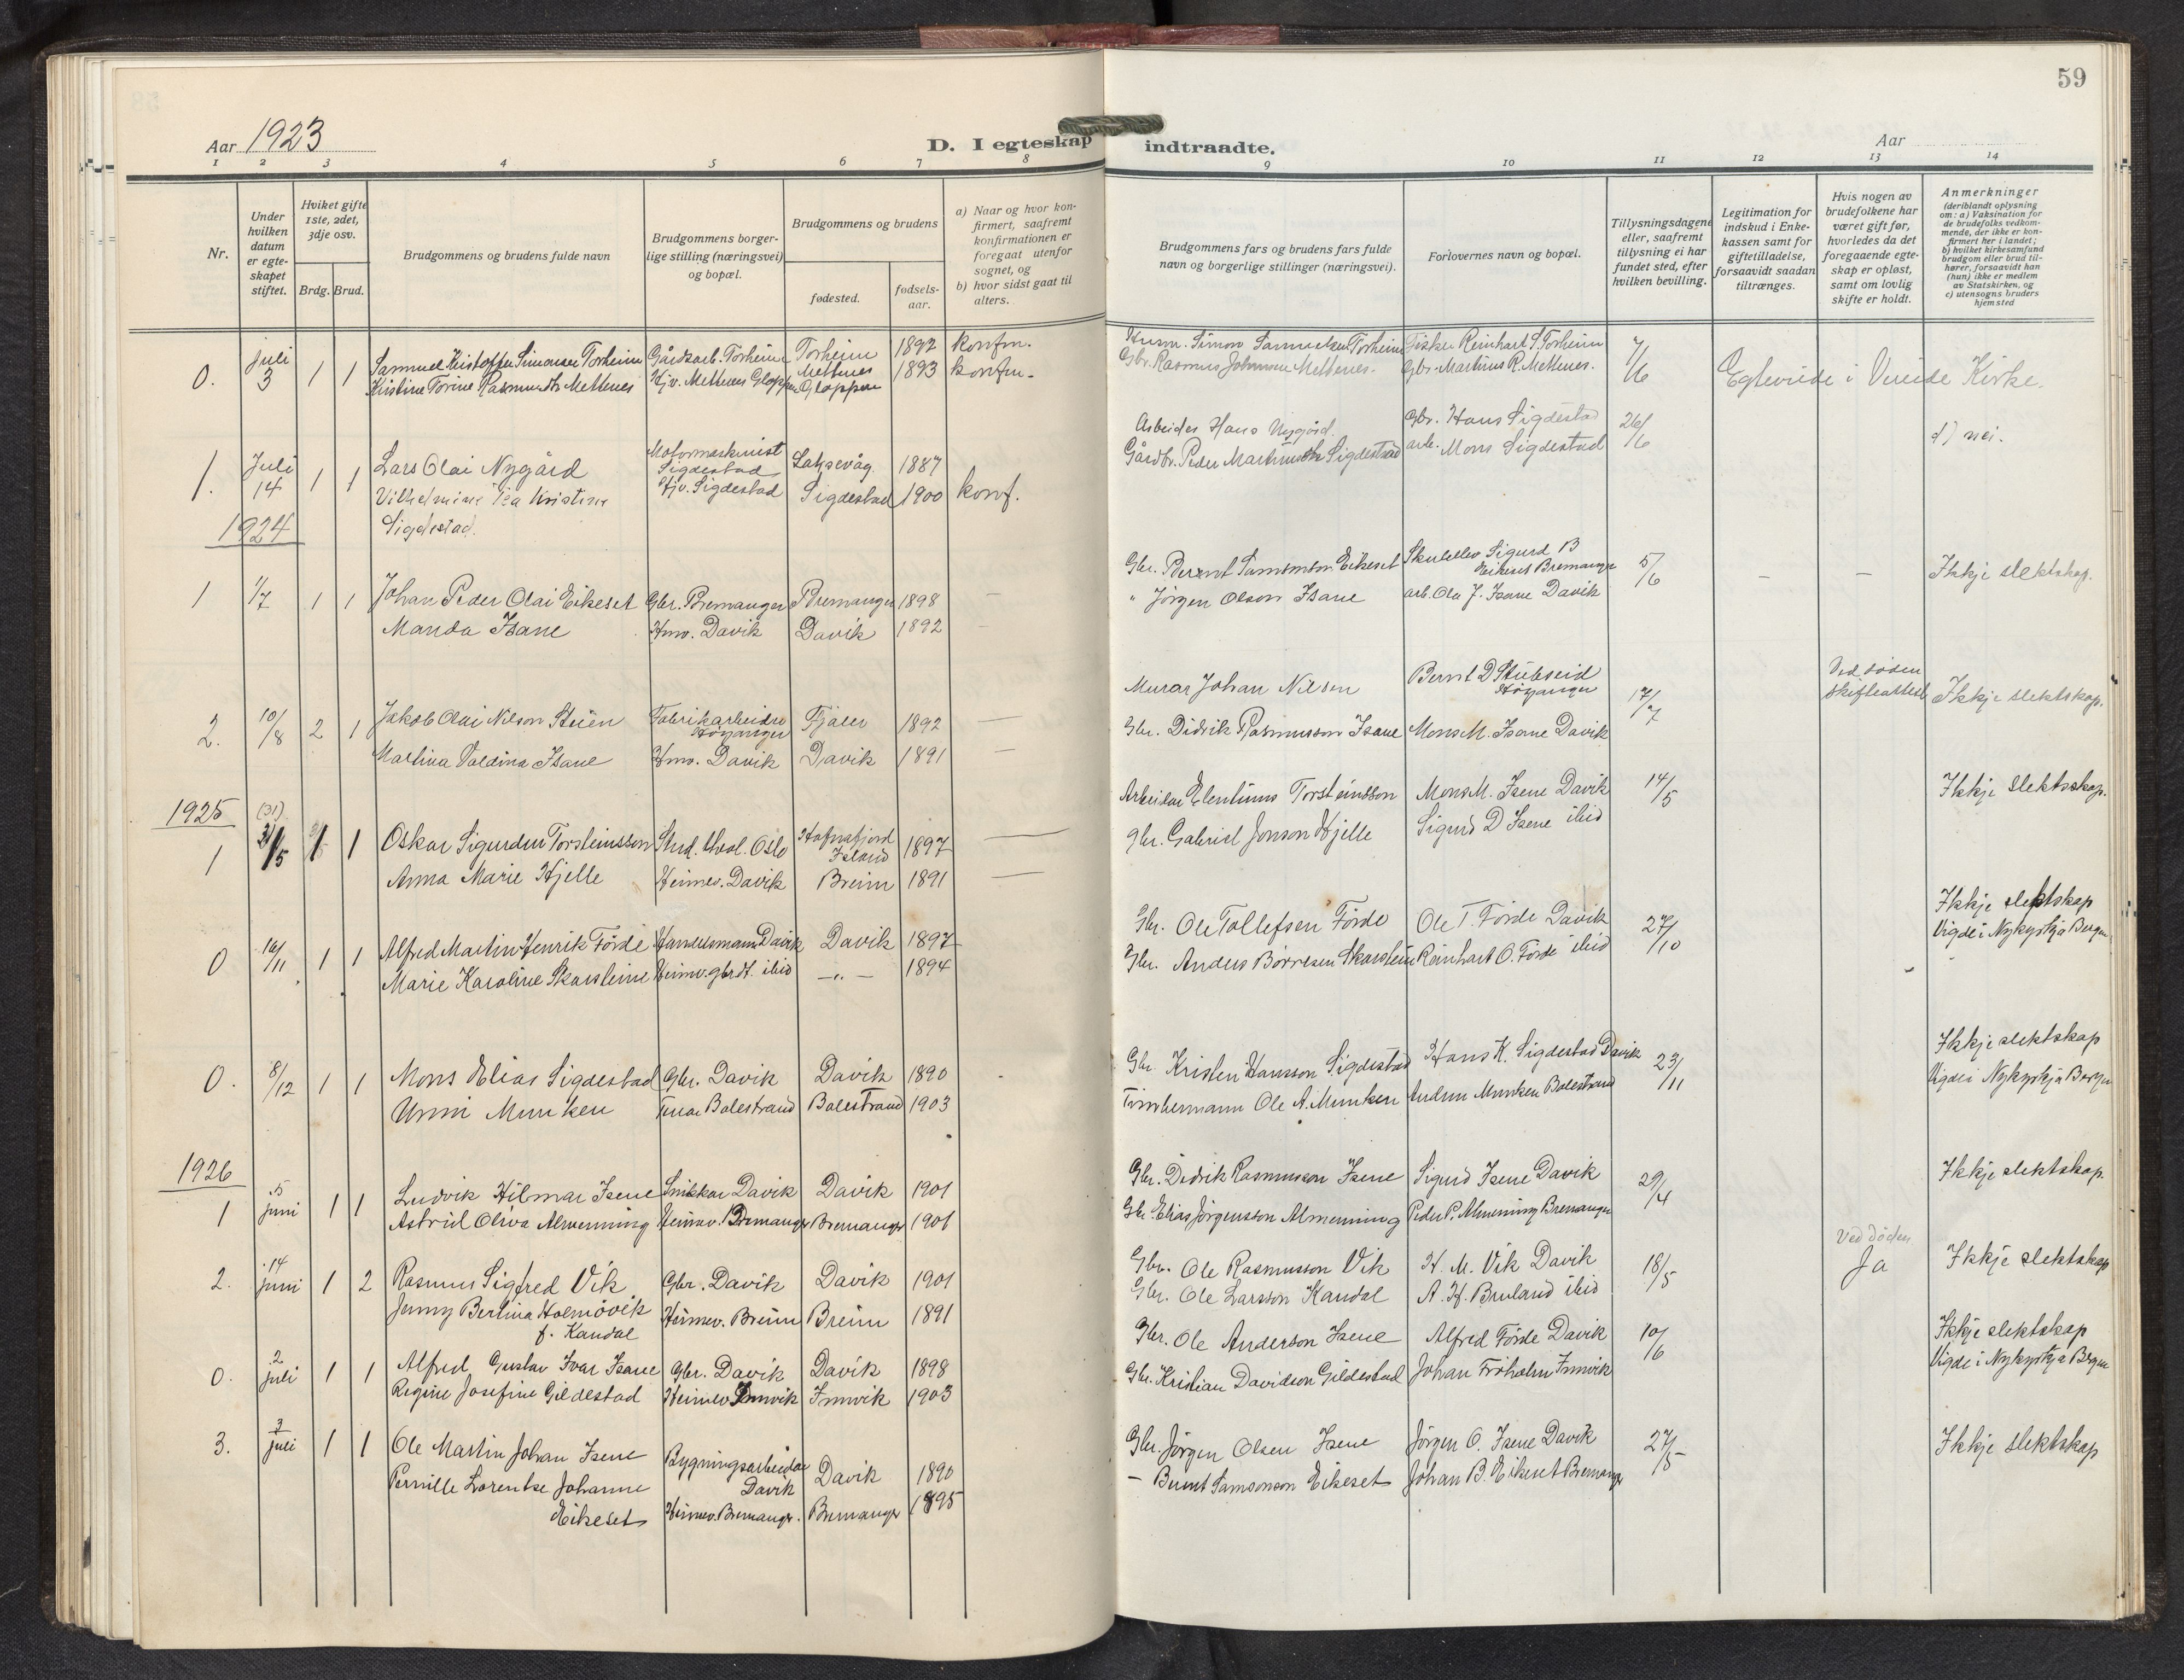 59
Aar 1923
D. I egteskap indtraadte.
Aar
1 2 3 4 5 6 7 8 9 10 11 12 13 14
Nr.
Under hvilken datum er egteskapet stiftet.
Hviket gifte 1ste, 2det, 3dje osv.
Brdg. Brud.
Brudgommens og brudens fulde navn
Brudgommens borgerlige stilling (næringsvei) og bopæl.
Brudgommens og brudens
fødested.
fødselsaar.
a) Naar og hvor konfirmert, saafremt konfirmationen er foregaat utenfor sognet, og
b) hvor sidst gaat til alters.
Brudgommens fars og brudens fars fulde navn og borgerlige stillinger (næringsvei).
Forlovernes navn og bopæl.
Tillysningsdagene eller, saafremt tillysning ei har fundet sted, efter hvilken bevilling.
Legitimation for indskud i Enkekassen samt for giftetilladelse, forsaavidt saadan tiltrænges.
Hvis nogen av brudefolkene har været gift før, hvorledes da det foregaaende egteskap er opløst, samt om lovlig skifte er holdt.
Anmerkninger (deriblandt oplysning om: a) Vaksination for de brudefolks vedkommende, der ikke er konfirmert her i landet; b) hvilket kirkesamfund brudgom eller brud tilhører, forsaavidt han (hun) ikke er medlem av Statskirken, og c) utensogns bruders hjemsted
0. Juli 3 1 1 Sammuel Kristoffer Simonsen Torheim Gårdsarb. Torheim Torheim 1892 konfm. Simon Samuelsen Torheim Fisker Reinhart S. Torheim 7/6 Egteviede i Kirke.
Kristine Torine Rasmusdtr. Mettenes Hjv. Mettenes Gloppen Mettenes Gloppen 1893 konfm. Gbr. Rasmus Johannsen Mettenes. Gbr. Martinus R. Mettenes.
1. Juli 14 1 1 Lars Olai Nygård Motormaskinist Sigdestad Laksevåg. 1887 Arbeider Hans Nygård. Gbr. Hans Sigdestad 26/6 d) nei.
Vilhelmine Tea Kristine Sigdestad. Hjv. Sigdestad Sigdestad 1900 konf. Gårdbr. Peder Sigdestad arb. Mons Sigdestad
1924
1 1/7 1 1 Johan Peder Olai Eikeset Gbr. Bremanger Bremanger 1898 — Gbr. Bernt Samsonson Eikeset Sigurd B Eikeset Bremanger 5/6 — — Ikkje slektskap.
Manda Isane Hmv. Davik Davik 1892 — " Jörgen Olson Isane arb. Ola J. Isane Davik
2. 10/8 2 1 Jakob Olai Nilson Steien Fabrikarbeider Höyanger Fjaler 1892 — Murar Johan Nilsen Bernt D Stubseid Höyanger 17/7 Ved döden skifteattest Ikkje slektskap.
Martina Valdina Isane Hmv. Davik Davik 1891 — Gbr. Didrik Rasmusson Isane Mons M. Isane Davik
1925
1 (31) 31/5 1 1 Oskar Sigurdur Torsteinsson Stud. theol. Oslo Hafnafjord Island 1897 — Arbeidar Torsteinsson Mons M. Isene Davik 14/5 Ikkje slektsskap.
Anna Marie Hjelle Heimev. Davik Breim 1891 — gbr. Gabriel Jonson Hjelle Sigurd D Isene ibid
0 16/11 1 1 Alfred Martin Henrik Förde Handelsmann Davik Davik 1897 Gbr. Ole Tollefsen Förde Ole T. Förde Davik 27/10 Ikkje slektskap
Marie Karoline Skarsteine Heimv. gbrdt. ibid —"— 1894 Gbr. Anders Börresen Skarstein Reinhart O. Förde ibid Vigde i Nykyrkja Bergen
0. 8/12 1 1 Mons Elias Sigdestad Gbr. Davik Davik 1890 Gbr Kristen Hansson Sigdestad Hans K. Sigdestad Davik 23/11 Ikkje slektskap
Unni Munken Balestrand Balestrand 1903 Timbermann Ole A. Munken Munken Balestrand Vigde i Nykyrkja Bergen
1926
1 5 juni 1 1 Ludvik Hilmar Isene Snikkar Davik Davik 1901 Gbr. Didrik Rasmusson Isene Sigurd Isene Davik 29/4 Ikkje slektskap.
Astrid Oliva Almenning Heimev. Bremanger Bremanger 1901 Gbr Elias Jörgensson Almenning Peder P. Almenning Bremanger
2. 14 juni 1 2 Rasmus Sigfred Vik Gbr. Davik Davik 1901 Gbr. Ole Rasmusson Vik H. M. Vik Davik 18/5 Ved döden Ja Ikkje slektskap
Jenny Bertina Holmövik f. Kandal Heimev. Breim Breim 1891 Gbr. Ole Larsson Kandal A. H. Bruland ibid
0. 2 juli 1 1 Alfred Gustav Ivar Isane Gbr. Davik Davik 1898 Gbr. Ole Anderson Isene Alfred Förde Davik 10/6 Ikkje slektskap
Regine Josefine Gildestad Heimev Innvik Innvik 1903 Gbr. Kristian Davidson Gildestad Johan Fröholm Innvik Vigde i Nykyrkja Bergen
3. 7 juli 1 1 Ole Martin Johan Isene Bygningsarbeidar Davik Davik 1890 Gbr. Jörgen Olsen Isene Jörgen O. Isene Davik 27/5 Ikkje slektskap
Pernille Lorentse Johanne Eikeset Heimev. Bremanger. Bremanger 1895 — Bernt Samsonson Eikeset Johan B. Eikeset Bremanger